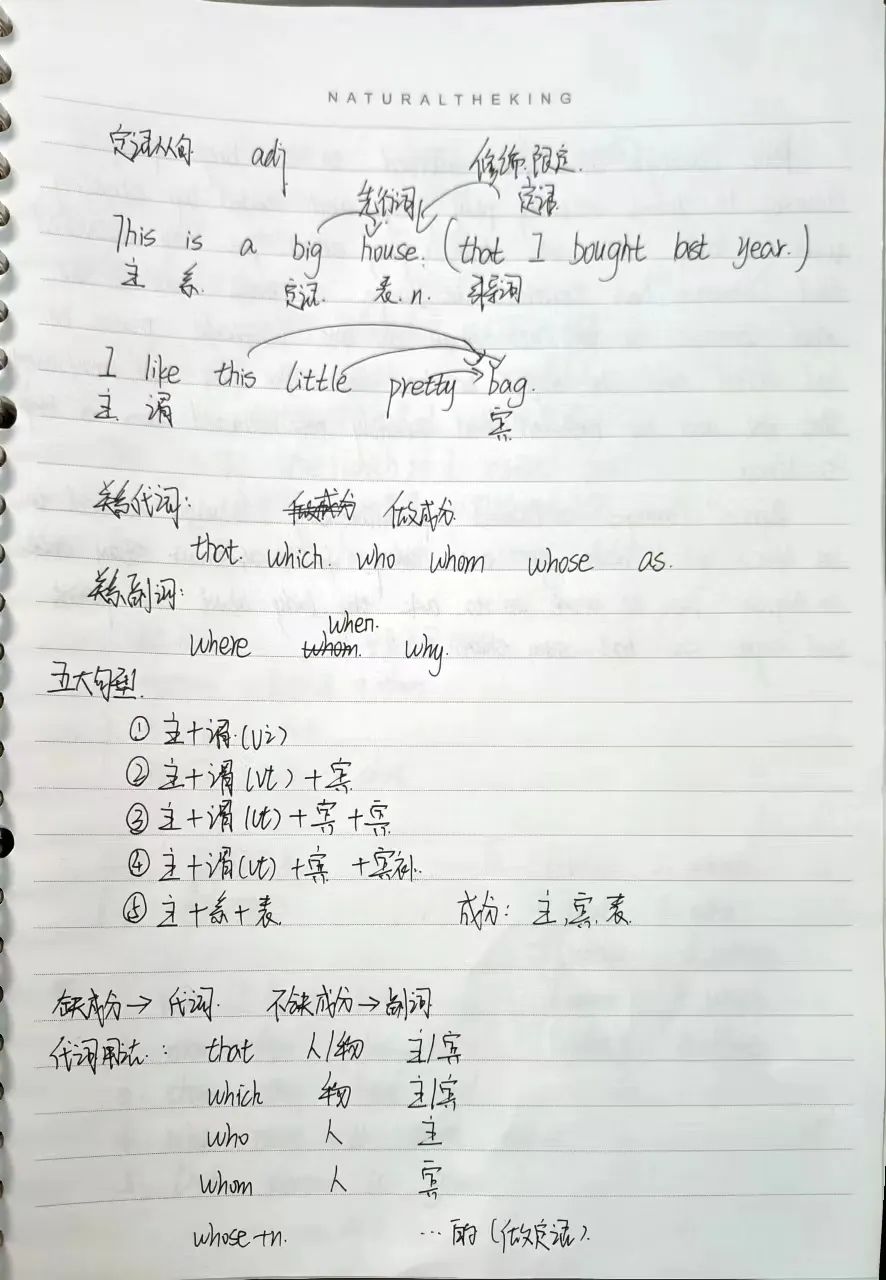 NATURALTHEKING
定语从句 adj 修饰.限定.
先行词 定语
This is a big house. (that I bought last year.)
主 系. 定语. 表. n. 引导词
I like this little pretty bag.
主. 谓 宾
关系代词: 做成分 做成分
that. which. who whom whose as.
关系副词:
when.
where whom. why.
五大句型.
① 主+谓.(vi)
② 主+谓(vt)+宾
③ 主+谓(vt)+宾+宾
④ 主+谓(vt)+宾 +宾补.
⑤ 主+系+表. 成分: 主,宾.表.
缺成分→代词. 不缺成分→副词
代词用法: that 人/物 主/宾
which 物 主/宾
who 人 主
whom 人 宾
whose+n. …的(做定语).